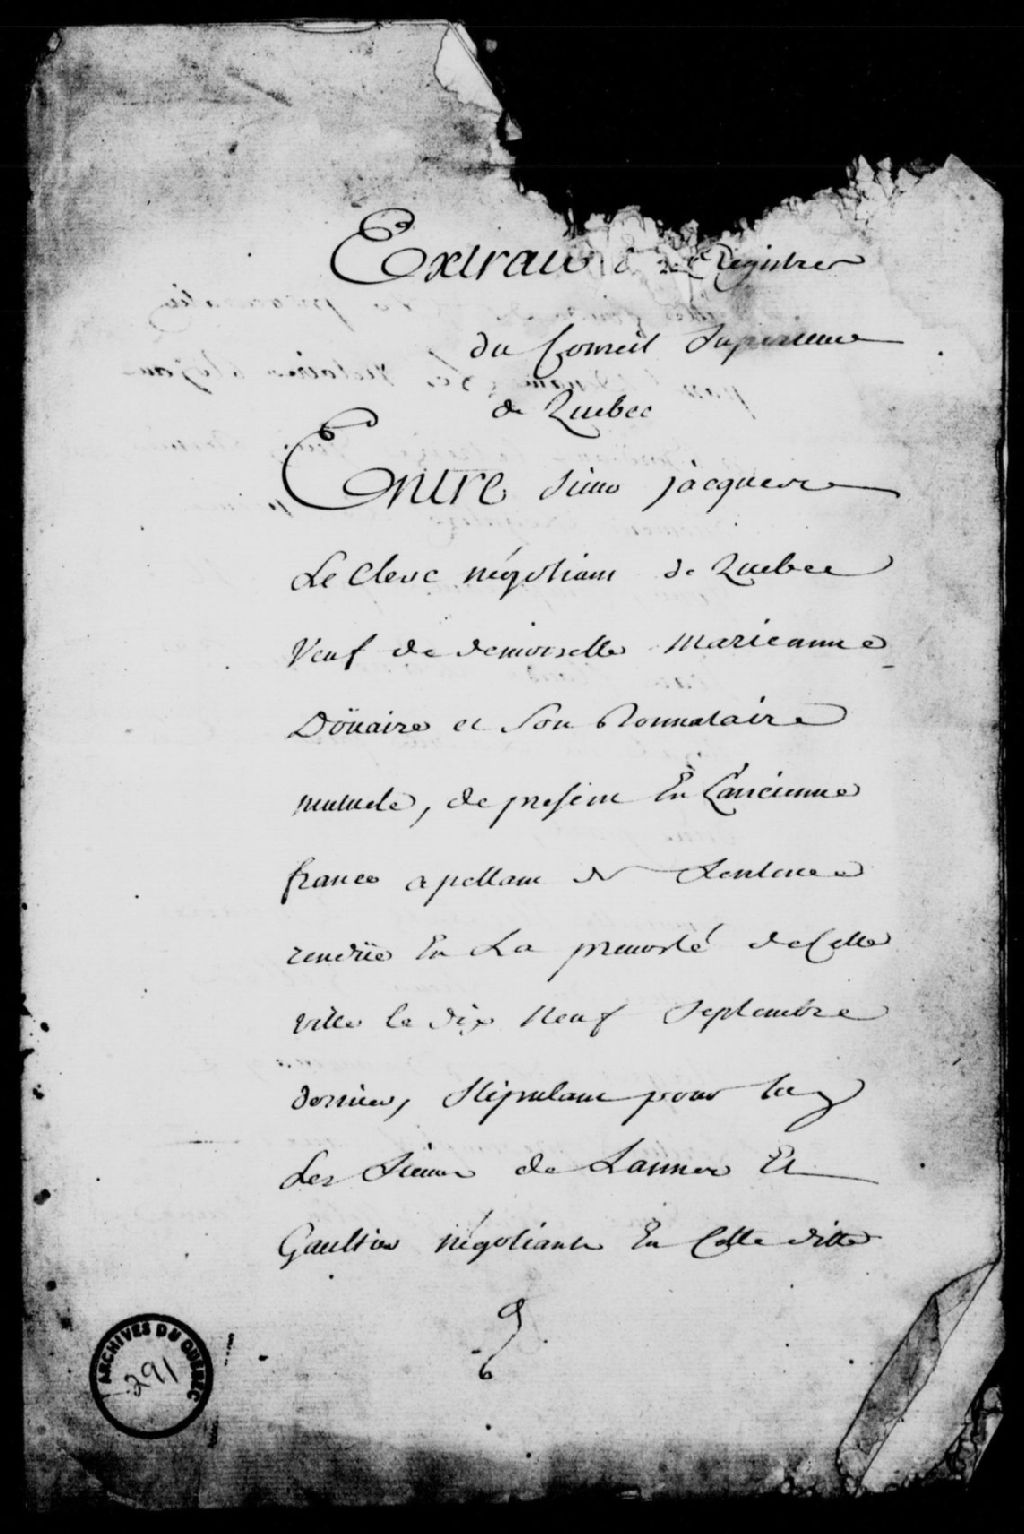 Extrait des Registres
du Conseil Superieur
de Quebec
Entre sieur jacques
Le Clerc négotiant de Quebec
Veuf de demoiselle Marieanne
Doüaire et Son Donnataire
mutuele, de present En Lancienne
france apellant de Sentence
rendüe En La prevosté de Cette
ville le dix Neuf Septembre
dernier, Stipulant pour luy
Les Sieurs de Lannes Et
Gaultier négotiants En Cette ville
ARCHIVES DU QUEBEC
291